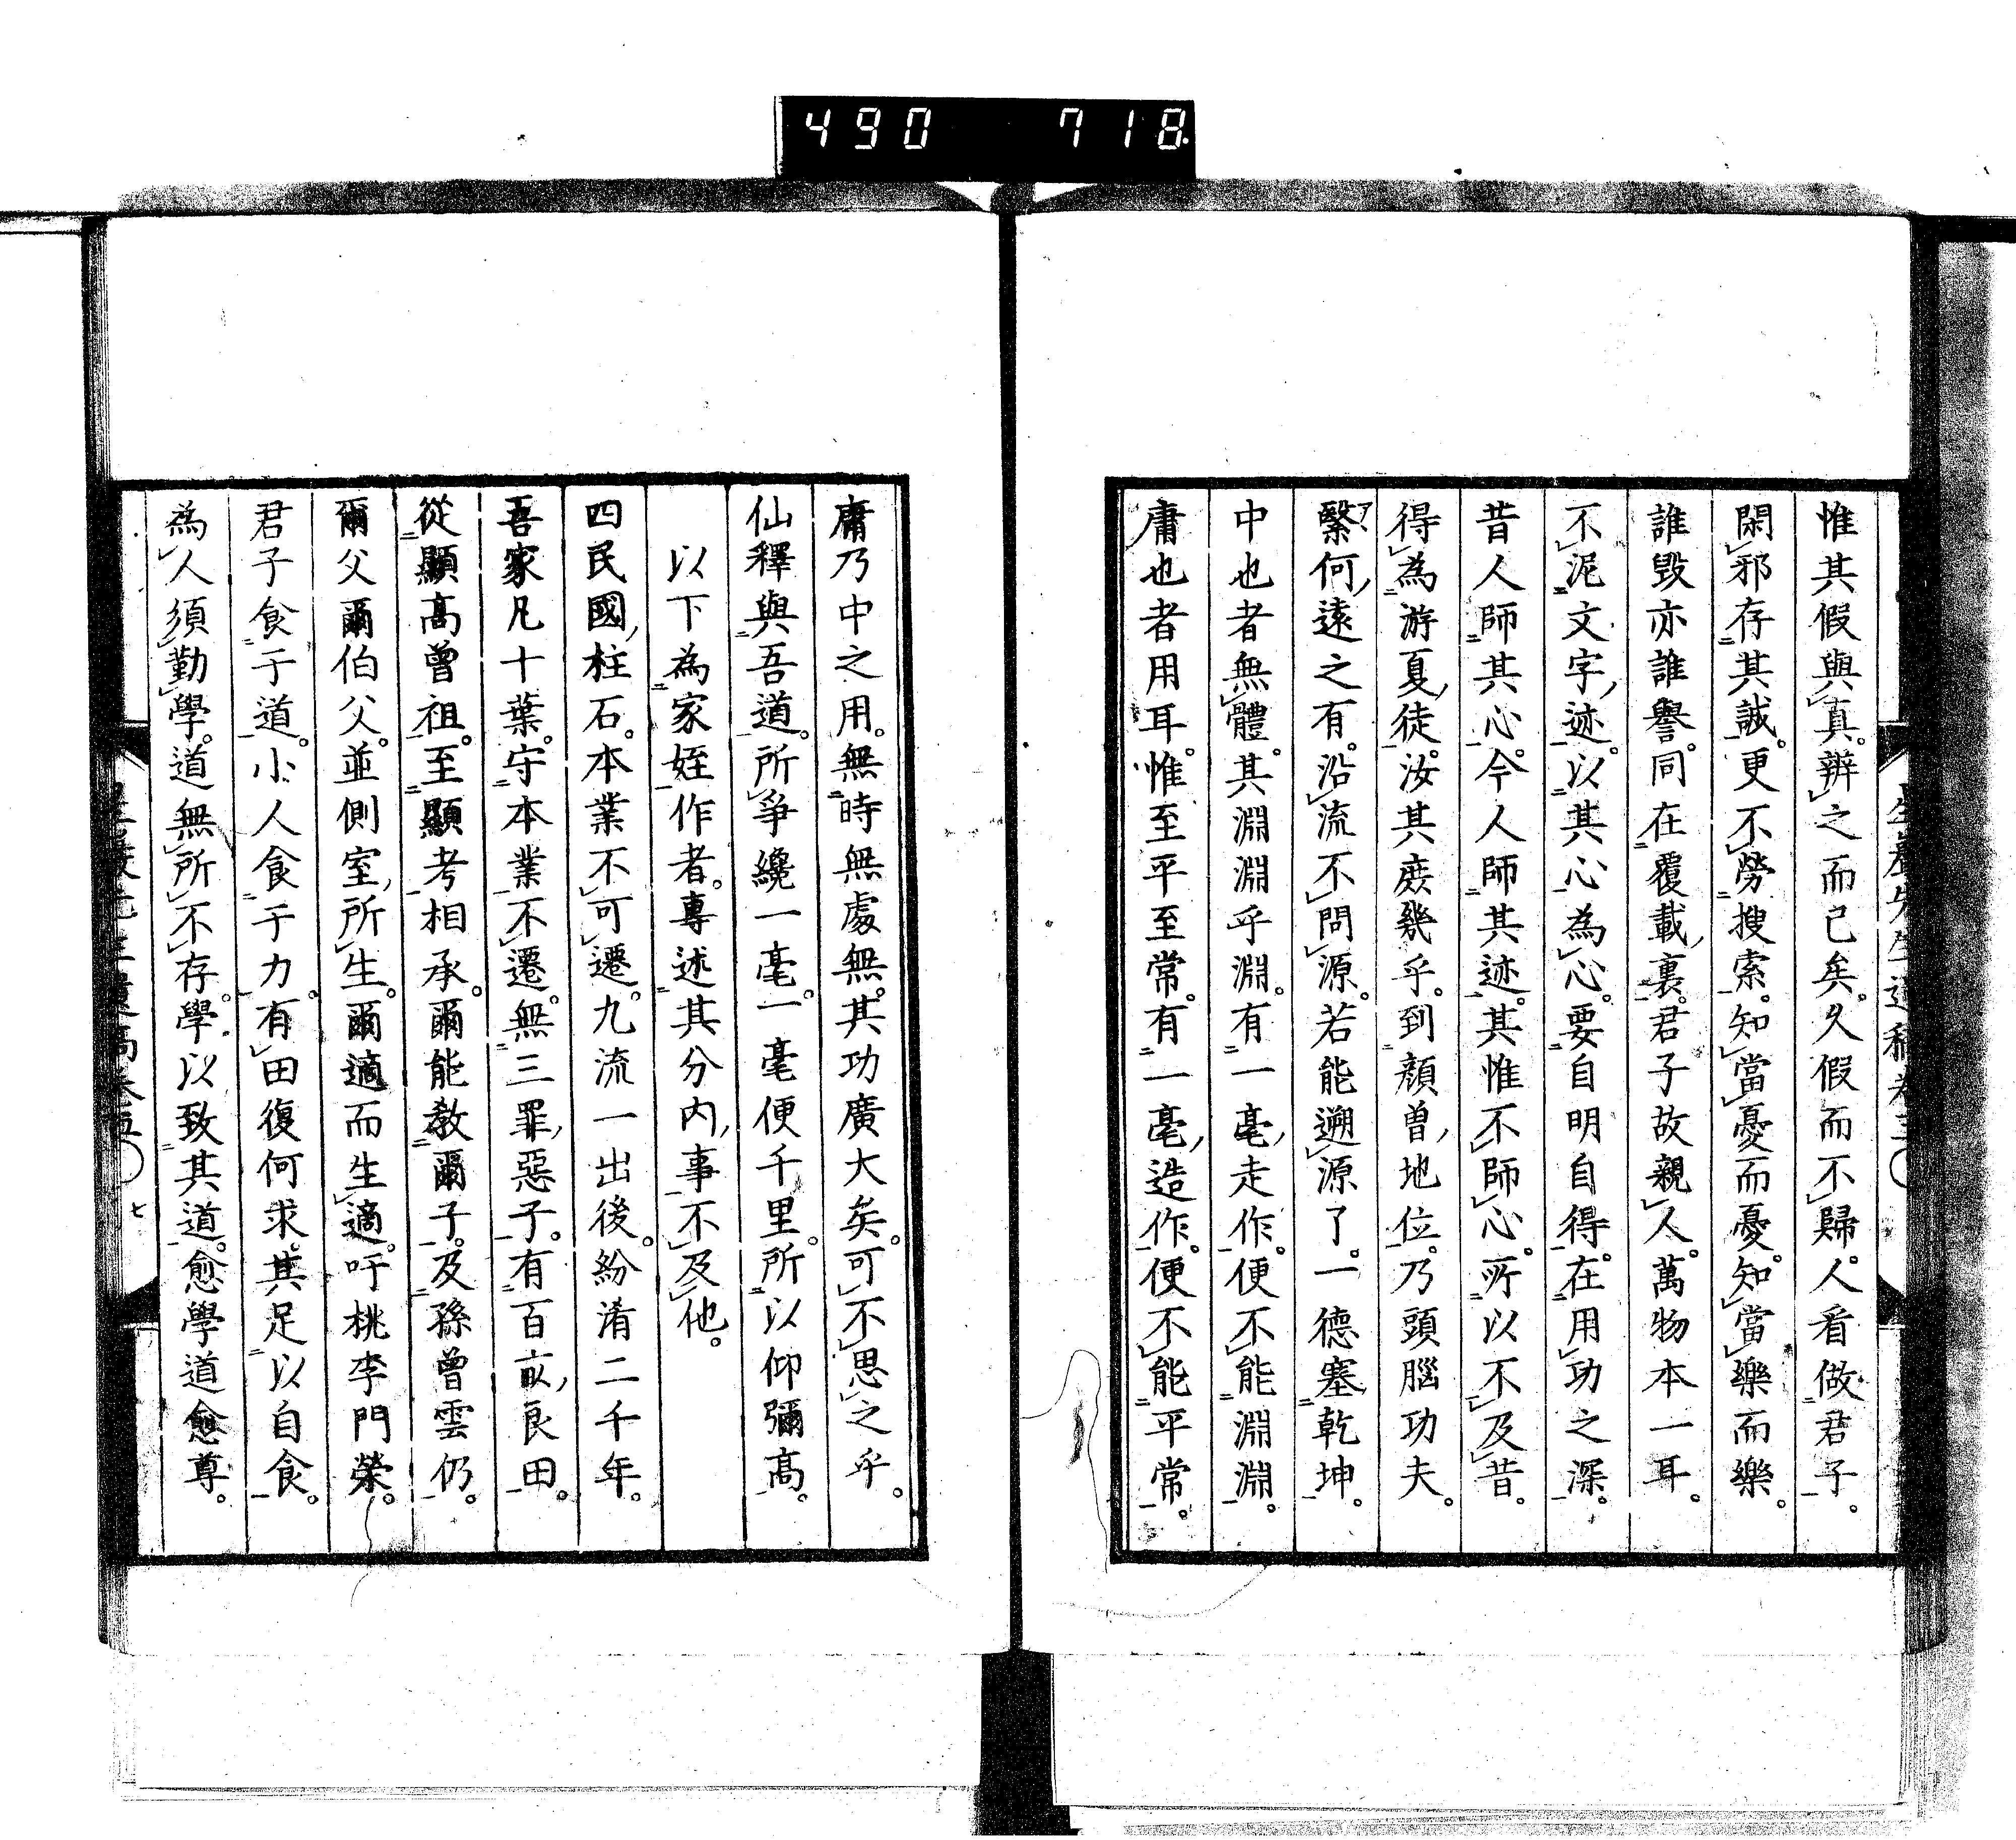 490 718
惟其假與真。辨之而已矣。久假而不歸。人看做君子。
閑邪存其誠。更不勞搜索。知當憂而憂。知當樂而樂。
誰毀亦誰譽。同在覆載裏。君子故親人。萬物本一耳。
不泥文字迹。以其心為心。要自明自得。在用功之深。
昔人師其心。今人師其迹。其惟不師心。所以不及昔。
得為游夏徒。汝其庶幾乎。到顏曾地位。乃頭腦功夫。
繄何遠之有。沿流不問源。若能遡源了。一德塞乾坤。
中也者無體。其淵淵乎淵。有一毫走作。便不能淵淵。
庸也者用耳。惟至平至常。有一毫造作。便不能平常。
庸乃中之用。無時無處無。其功廣大矣。可不思之乎。
仙釋與吾道。所爭纔一毫。一毫便千里。所以仰彌高。
以下為家姪作者。專述其分內事不及他。
四民國柱石。本業不可遷。九流一出後。紛淆二千年。
吾家凡十葉。守本業不遷。無三罪惡子。有百畝良田。
從顯高曾祖。至顯考相承。爾能教爾子。及孫曾雲仍。
爾父爾伯父。並側室所生。爾適而生適。吁桃李門榮。
君子食于道。小人食于力。有田復何求。其足以自食。
為人須勤學。道無所不存。學以致其道。愈學道愈尊。
七